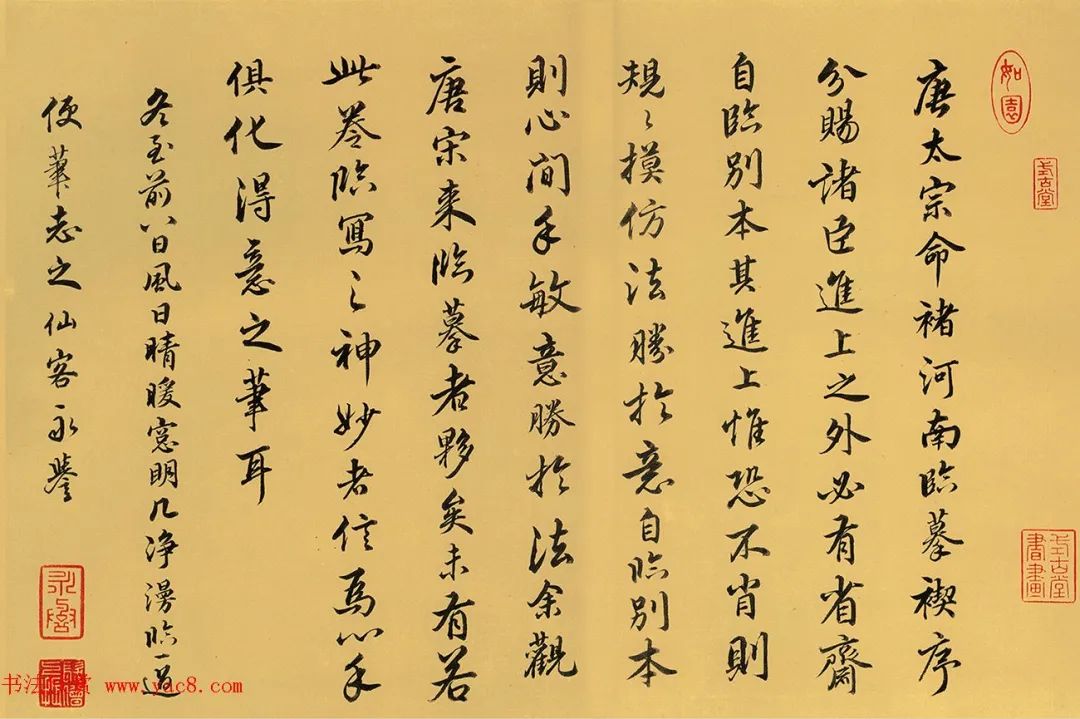 唐太宗命褚河南臨摹禊序
分賜諸臣進上之外必有省齋
自臨別本其進上惟恐不肖則
規〻摸仿法勝於意自臨別本
則心閒手敏意勝於法余觀
唐宋來臨摹者夥矣未有若
此卷臨寫之神妙者信爲心手
俱化得意之筆耳
冬至前八日風日晴暖窓明几净漫臨一過
便筆志之仙客永譽
如園
式古堂
式古堂書畫
永譽
书法欣赏 www.yac8.com